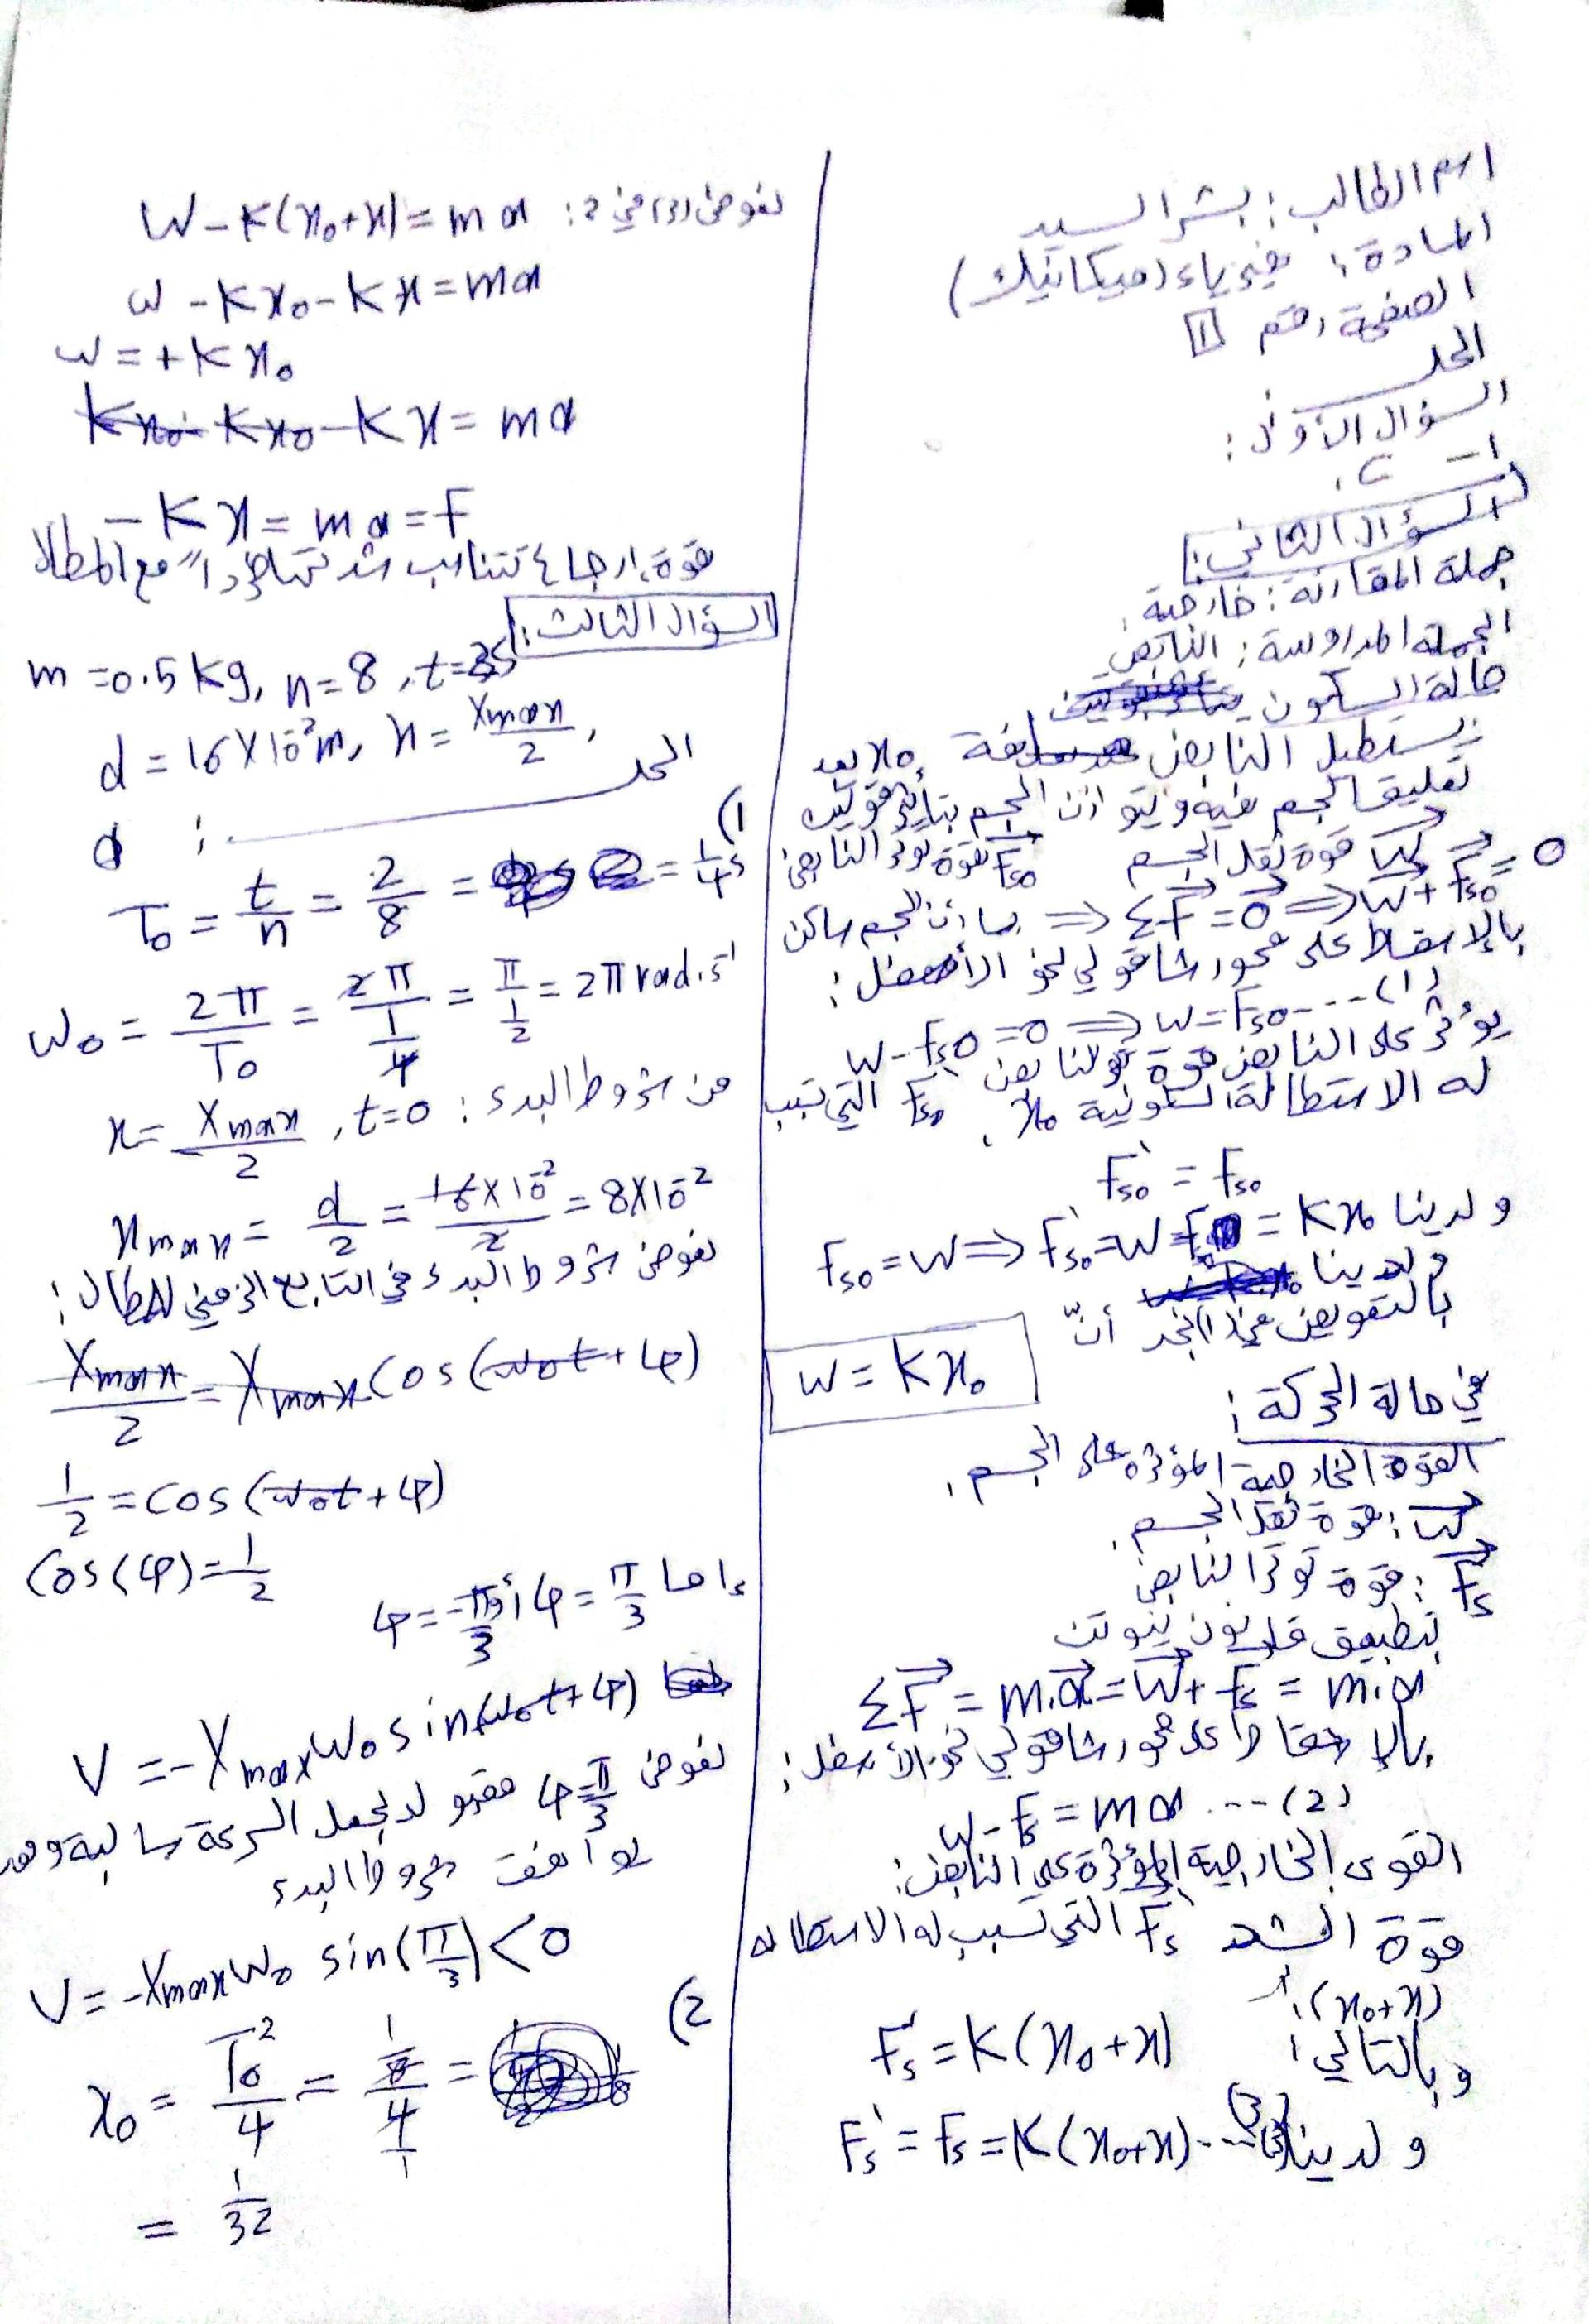 اسم الطالب: بشر السيد
المادة: فيزياء (ميكانيك)
الصفحة رقم 1
الحل
السؤال الأول:
1- C.
السؤال الثاني:
جملة المقارنة: خارجية.
الجملة المدروسة: النابض
حالة السكون
يستطيل النابض مسافة x₀ بعد
تعليق الجسم فيه ويتوازن الجسم بتأثير قوتين
W قوة ثقل الجسم Fs₀ قوة توتر النابض
بما أن الجسم ساكن ⇒ ΣF = 0 ⇒ W + Fs₀ = 0
بالإسقاط على محور شاقولي نحو الأسفل:
W - Fs₀ = 0 ⇒ W = Fs₀ ....(1)
يؤثر على النابض قوة
Fs₀' التي تسبب له الاستطالة السكونية x₀.
Fs₀' = Fs₀
ولدينا
Fs₀ = W ⇒ Fs₀' = W = Kx₀
بالتعويض نجد أنّ
W = Kx₀
في حالة الحركة:
القوة الخارجية المؤثرة على الجسم.
W: قوة ثقل الجسم.
Fs: قوة توتر النابض
بتطبيق قانون نيوتن
ΣF = m.a = W + Fs = m.a
بالإسقاط على محور شاقولي نحو الأسفل:
W - Fs = ma ....(2)
القوى الخارجية المؤثرة على النابض:
قوة الشد Fs' التي تسبب له الاستطالة
(x₀+x):
وبالتالي: Fs' = K(x₀+x)
ولدينا Fs' = Fs = K(x₀+x) ....(3)
نعوض (3) في 2: W - K(x₀+x) = ma
W - Kx₀ - Kx = ma
W = +Kx₀
Kx₀ - Kx₀ - Kx = ma
-Kx = ma = F
قوة إرجاع تتناسب شدتها طرداً مع المطال
السؤال الثالث:
m = 0.5 kg, n = 8, t = 2s
d = 16×10⁻²m, x = Xmax/2,
الحل:
1)
T₀ = t/n = 2/8 = 1/4 s
ω₀ = 2π/T₀ = 2π/(1/4) = π/(1/2) = 2π rad.s⁻¹
من شروط البدء: x = Xmax/2, t=0
Xmax = d/2 = 16×10⁻²/2 = 8×10⁻²
نعوض شروط البدء في التابع الزمني للمطال:
Xmax/2 = Xmax cos(ω₀t+φ)
1/2 = cos(ω₀t+φ)
cos(φ) = 1/2
إما φ = π/3 أو φ = -π/3
V = -Xmax ω₀ sin(ω₀t+φ)
نعوض φ = π/3 لجعل السرعة سالبة وهو
يوافق شروط البدء
V = -Xmax ω₀ sin(π/3) < 0
2)
x₀ = T₀²/4 = (1/8)/(4/1) =
= 1/32